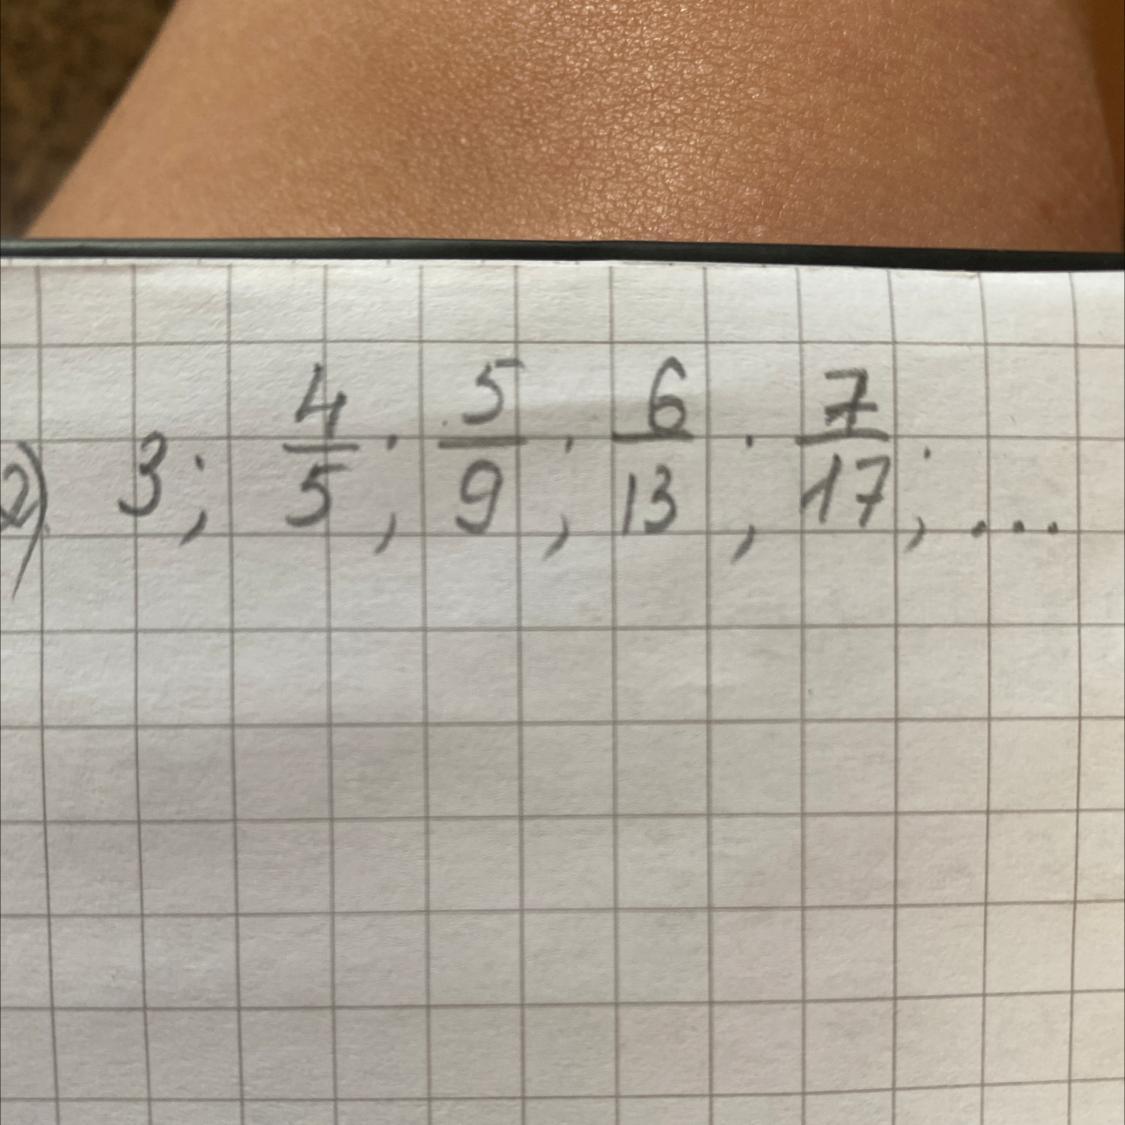 2) 3; 4/5; 5/9; 6/13; 7/17; ...